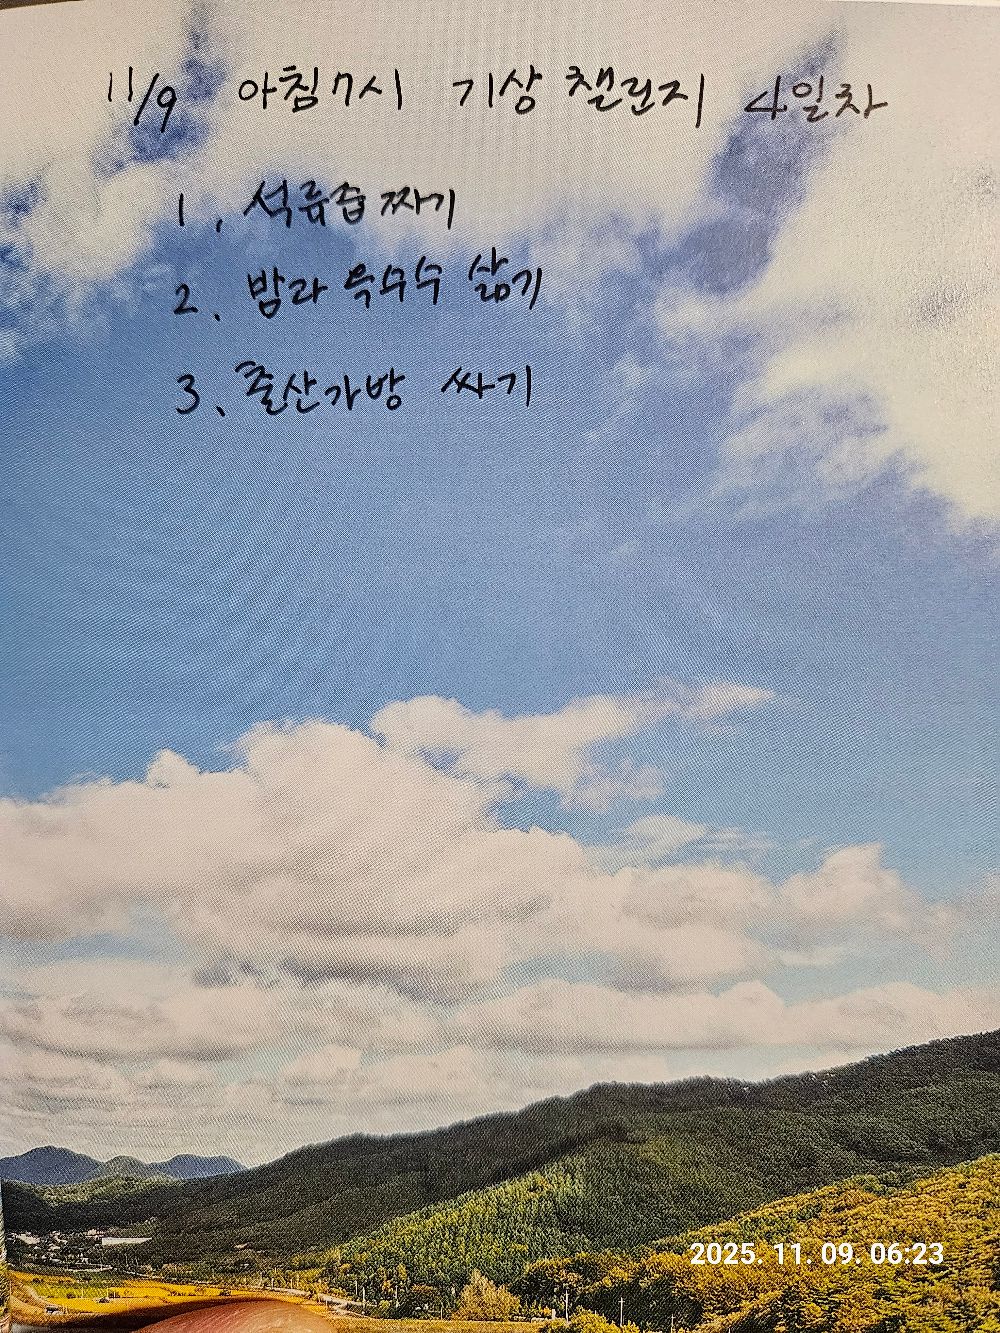 11/9 아침7시 기상 챌린지 4일차
1. 석류즙 짜기
2. 밤과 옥수수 삶기
3. 출산가방 싸기
2025. 11. 09. 06:23